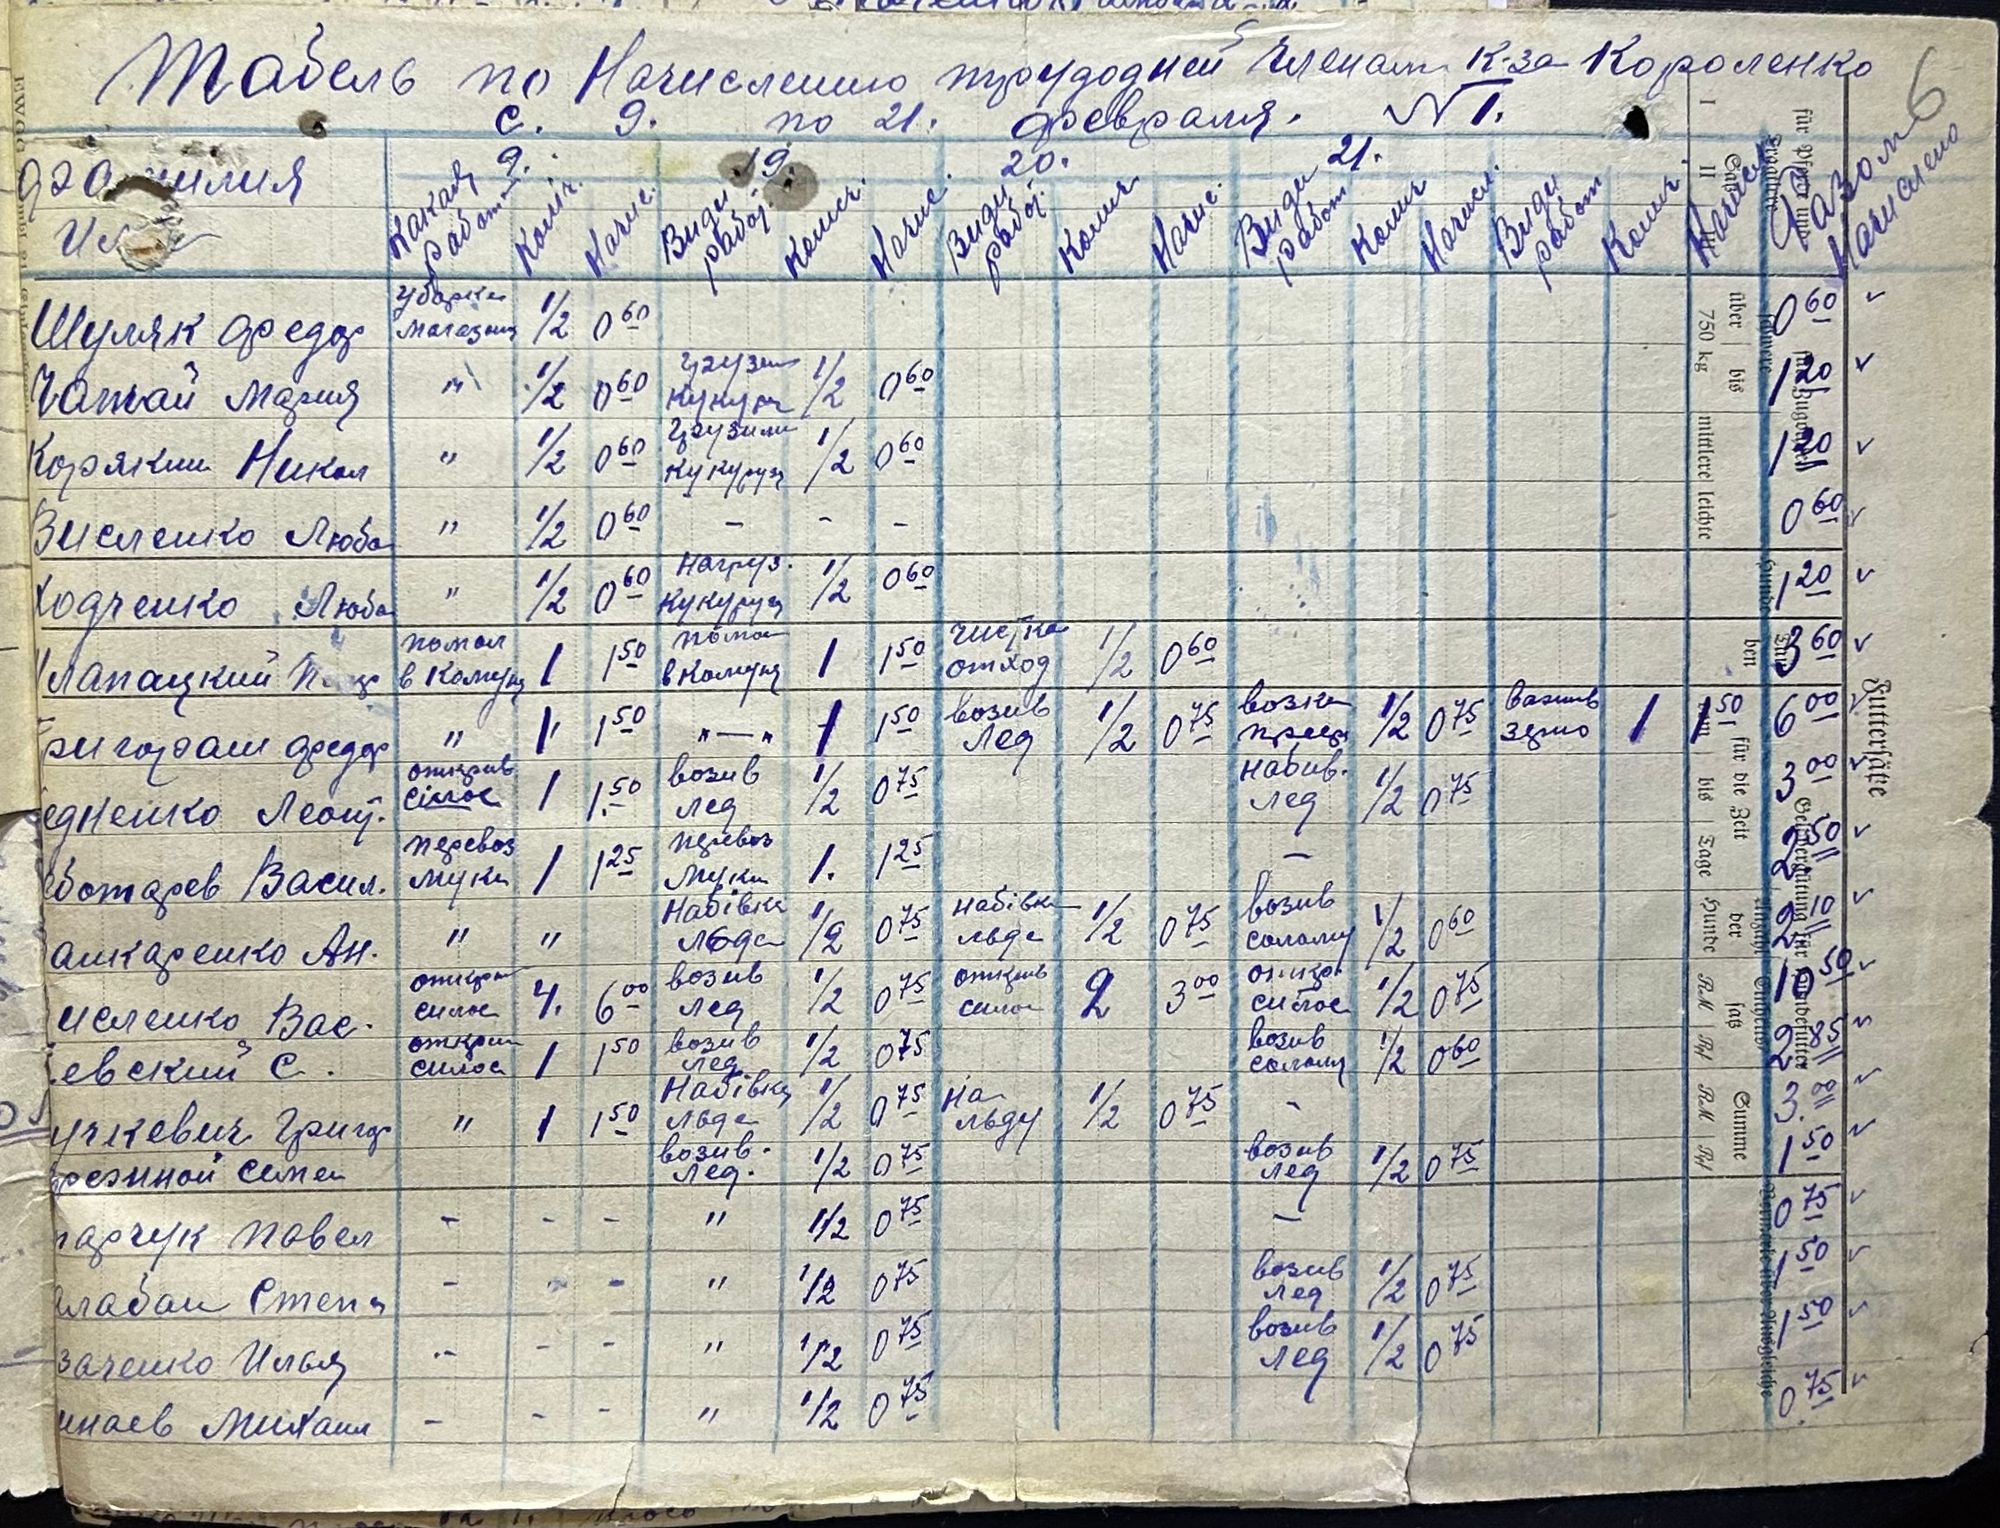 Табель по Начислению трудодней членам к-за Короленко
с. 9. по 21. февраля. N 1.
6
9. 19. 20. 21.
Какая работа Колич. Начис. Виды работ. Колич. Начис. Виды работ. Колич Начис. Виды работ Колич Начисл. Виды работ Колич Начисл Разом Начислено
Шуляк Федор уборка магазина 1/2 0 60 0 60
Чапчай Мария " 1/2 0 60 грузили кукуруз 1/2 0 60 1 20
Корякин Никол " 1/2 0 60 грузили кукуруз 1/2 0 60 1 20
Висленко Люба " 1/2 0 60 - - - 0 60
Ходченко Люба " 1/2 0 60 нагруз. кукуруз 1/2 0 60 1 20
лапацкий помол в Комуну 1 1 50 помол в Комуну 1 1 50 чистка отход 1/2 0 60 3 60
ригораш Федор " 1 1 50 "—" 1 1 50 возив лед 1/2 0 75 возка 1/2 0 75 зерно 1 1 50 6 00
едненко Леонт. открив сілос 1 1 50 возив лед 1/2 0 75 набив. лед 1/2 0 75 3 00
ботарев Васил. перевоз муки 1 1 25 перевоз муки 1. 1 25 — 2 50
анкаренко Ан. " " Набівка льда 1/2 0 75 набівка льда 1/2 0 75 возив солому 1/2 0 60 2 10
исленко Вас. открив силос 4. 6 00 возив лед 1/2 0 75 открив силос 2 3 00 откр. силос 1/2 0 75 10 50
евский С. открив силос 1 1 50 возив лед 1/2 0 75 возив солому 1/2 0 60 2 85
учкевич Григор " 1 1 50 Набівка льда 1/2 0 75 На льду 1/2 0 75 - 3. 00
режной Семен возив. лед. 1/2 0 75 возив лед 1/2 0 75 1 50
арчук Павел - - - " 1/2 0 75 — 0 75
алабан Степан - - - " 1/2 0 75 возив лед 1/2 0 75 1 50
заченко Илья - - - " 1/2 0 75 возив лед 1/2 0 75 1 50
инаев Михаил - - - " 1/2 0 75 0 75
I II
über bis
750 kg
mittlere leichte
Hunde
für die Zeit
bis Tage
der Hunde
RM Rpf
Summe
RM Rpf
Futtersätze